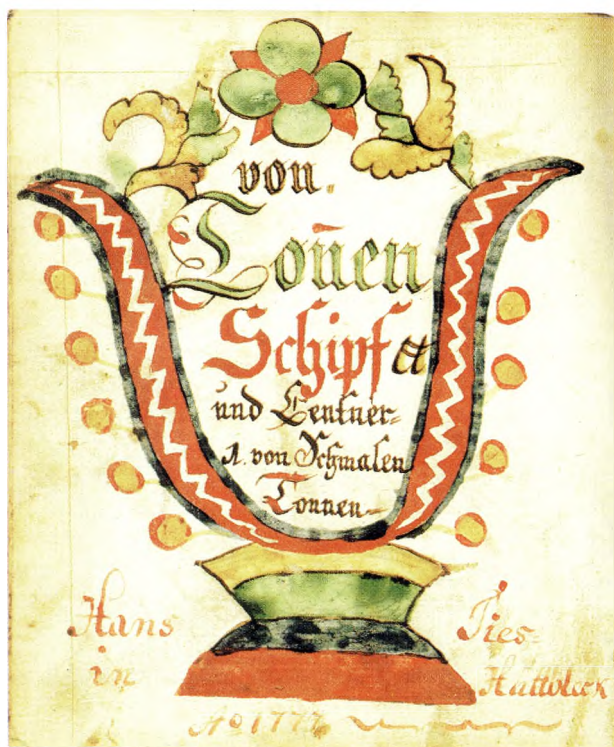 von.
Toũen
Schipf ℔
und Centner-
1. von Schmalen
Tonnen-
Hans Ties-
in Hattoleck
Aо 1777